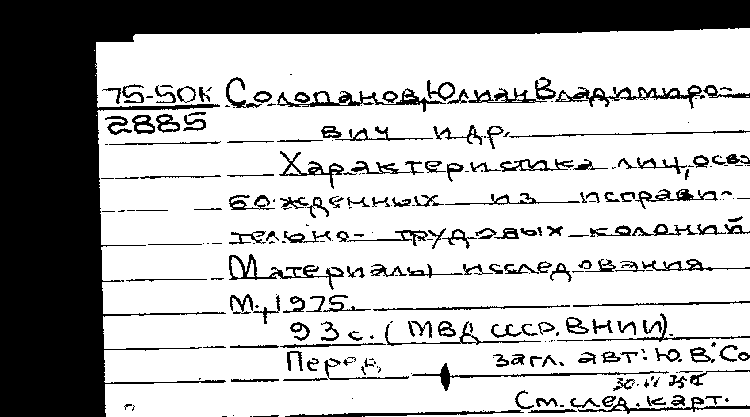 75-50К Солопанов, Юлиан Владимиро-
2885
вич и др.
Характеристика лиц, осво
божденных из исправи-
тельно-трудовых колоний
Материалы исследования.
М., 1975.
93 с. (МВД СССР. ВНИИ).
Перед загл. авт: Ю.В. Со
См. след. карт.